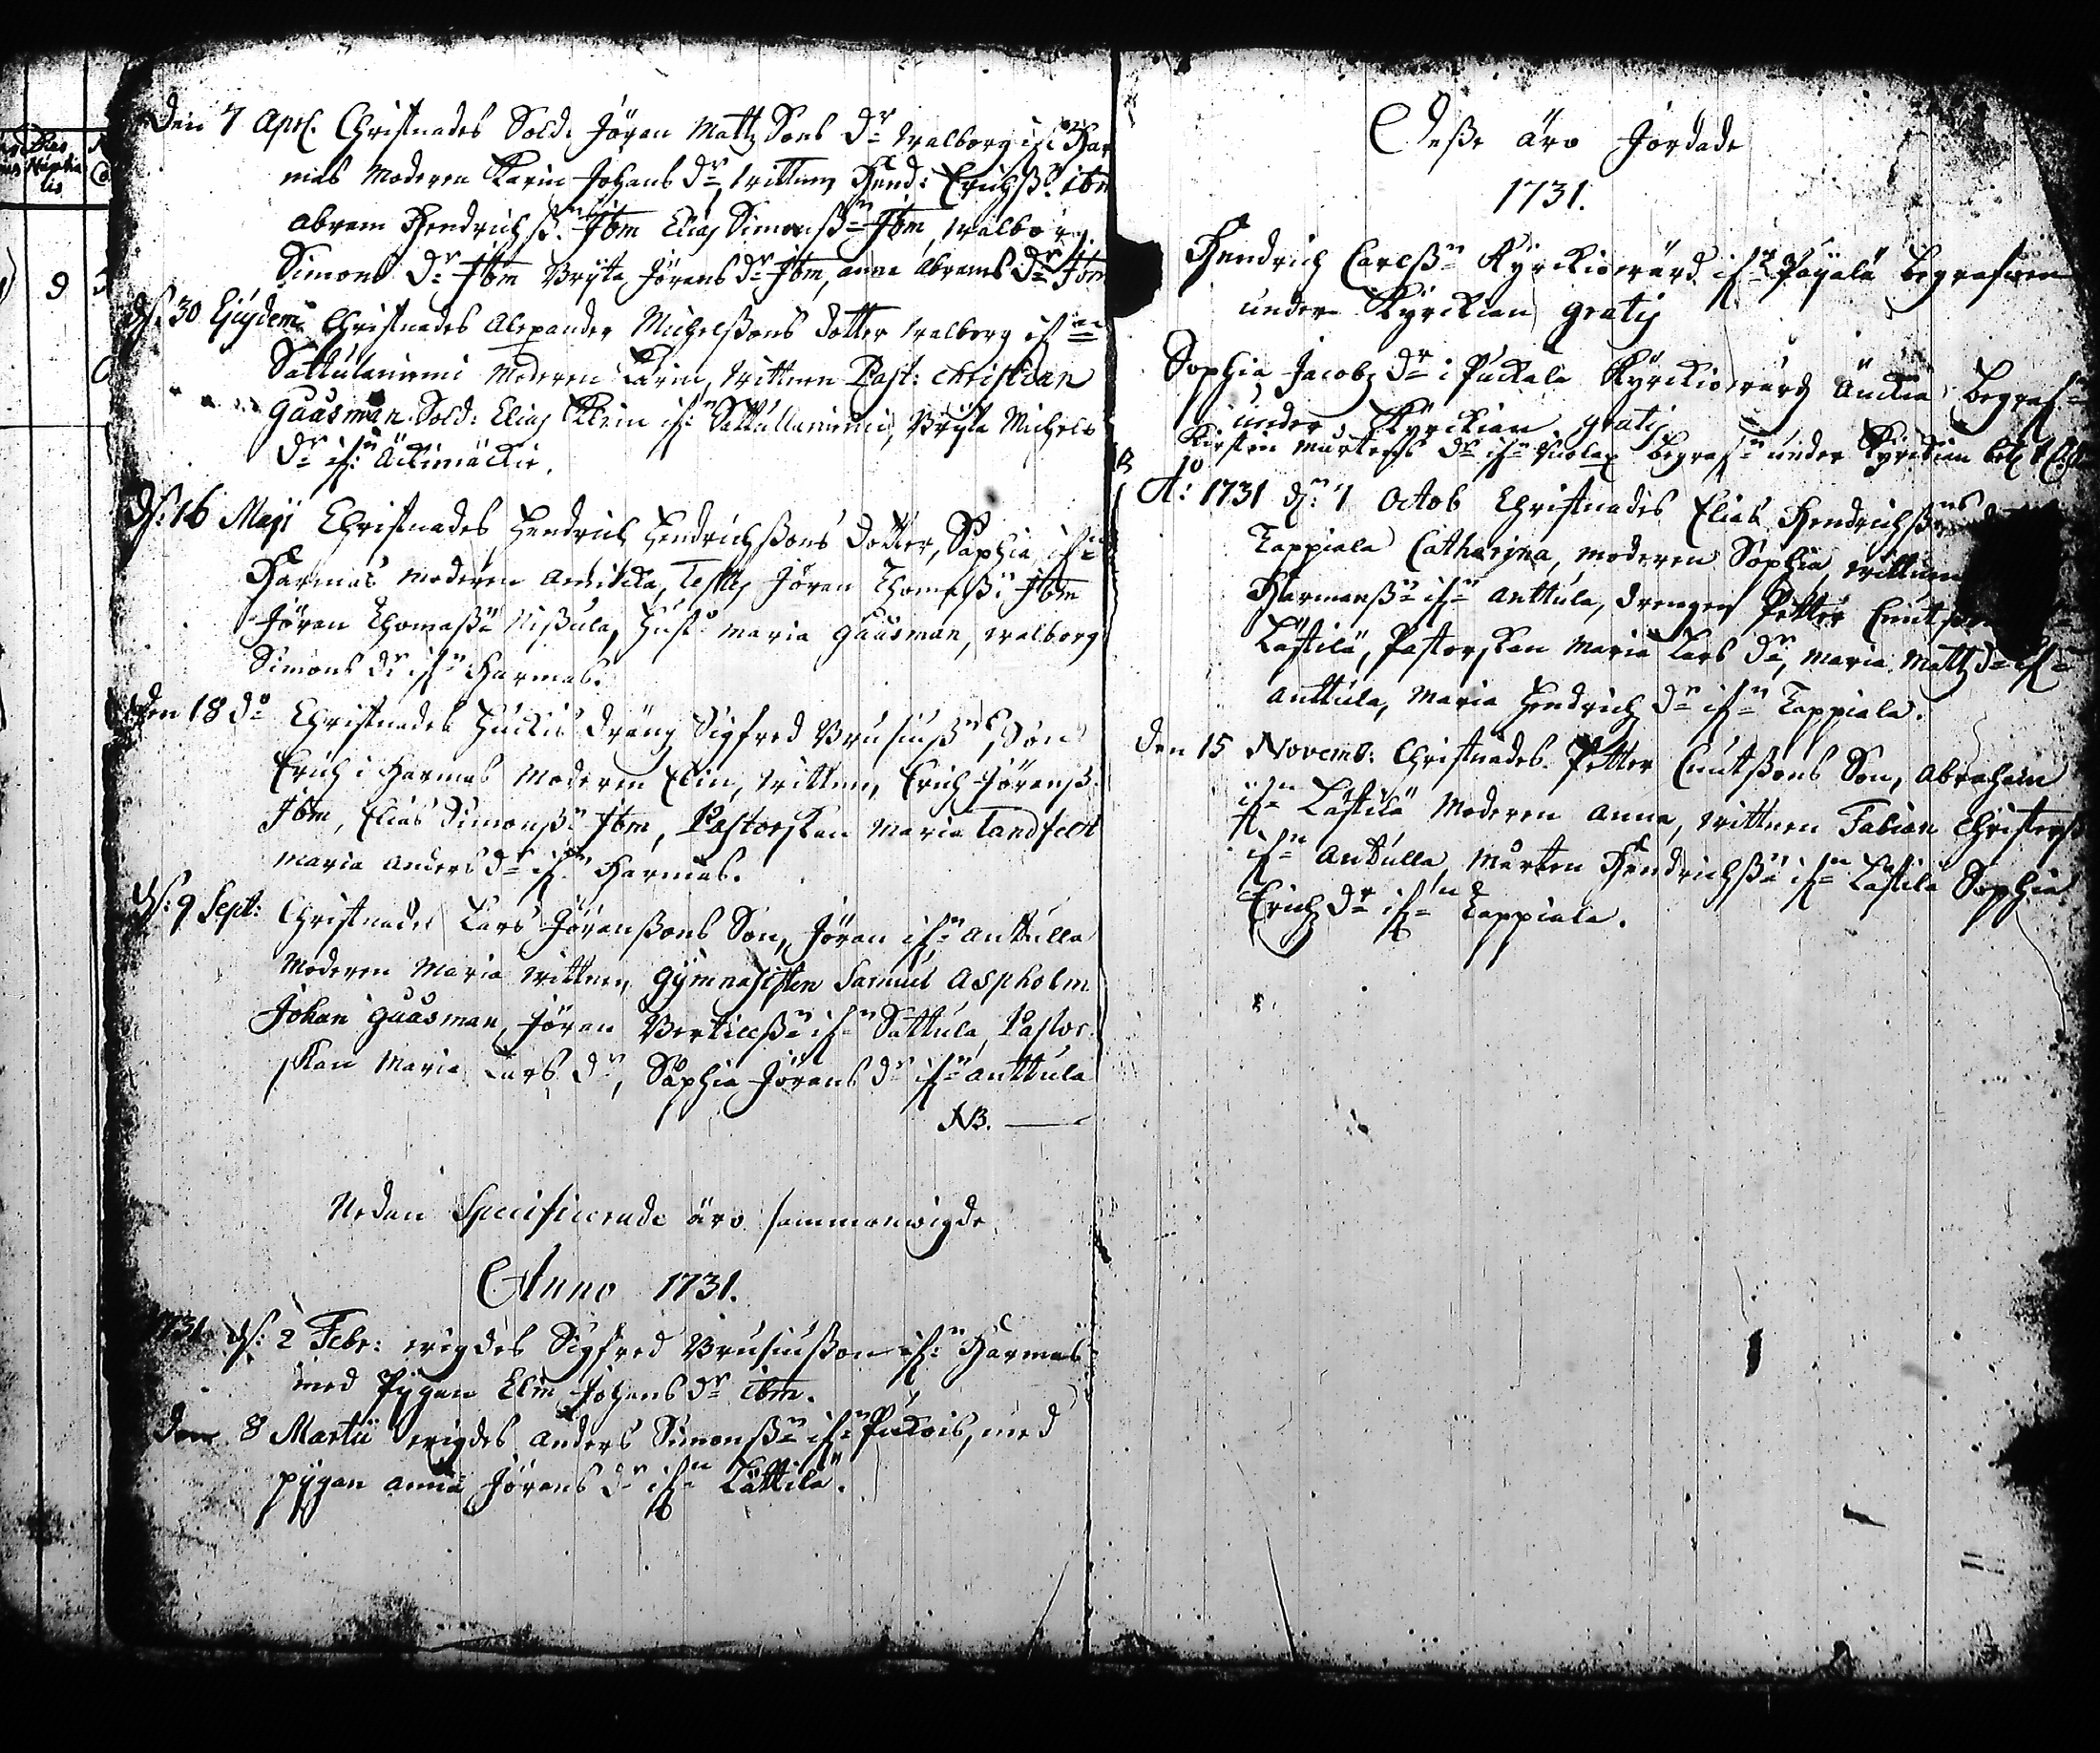 Den 7 Apr. Christnades Sold: Jöran Mattz Sons Dr Walborg if: Har
mas Moderen Karin Johans Dr, wittnen Hend: Erichss: ibm
Abram Hendrichss: Ibm Elias Simonss: Ibm, Walborg
Simons Dr Ibm Bryta Jörans Dr Ibm, Anna Abrams Dr Ibm
d: 30 Ejusdem Christnades Alexander Michelssons Dotter Walborg if:
Sattulaniemi Moderen Karin, wittnen Past: Christian
Gaasman Sold: Elias Klein if: Sattullaniemi, Bryta Michels
Dr if: Äikimäckie.
d: 16 Maji Christnades Hendrich Hendrichssons Dotter, Sophia if:
Harmas moderen Annicka, Testes Jöran Thomass: Ibm
Jöran Thomass: Nissula, Hust: Maria Gaasman, Walborg
Simons Dr if: Harmas.
Den 18 do Christnades Huckis Dräng Sigfred Brusiuss: Son
Erich i Harmas Moderen Elin, wittnen, Erich Jöranss:
Ibm, Elias Simonss: Ibm, Pastorskan Maria Tandfelt
Maria Anders Dr if: Harmas.
d: 9 Sept: Christnades Lars Jöranssons Son, Jöran if: Anttulla
Moderen Maria wittnen, Gymnasisten Samuel Aspholm
Johan Gaasman, Jöran Bertilss: if: Sattula, Pastor-
skan Maria Lars Dr, Sophia Jörans Dr if: Anttula
NB.
Nedan Specificerade äro sammanwigde
Anno 1731.
1731 d: 2 Febr: wigdes Sigfred Brusiusson if: Harmas
med Pygan Elin Johans Dr ibm.
Den 8 Martii wigdes Anders Simonss: if: Puckois, med
pygan Anna Jörans Dr if: Lättilä.
Desse äro Jordade
1731.
Hendrich Carlss: Kyrckiowärd if: Päyälä begrafwen
under Kyrckian gratis
Sophia Jacobz Dr i Puckala Kyrckiowärdz Änckia begraf:
under Kyrckian gratis
Kirstin Mårtens Dr if: begraf: under Kyrckian
Ao: 1731 d: 1 Octob Christnades Elias Hendrichss:
Tappiala Catharina, moderen Sophia, wittnen
Harmanss: if: Anttula, drengen Petter Cnutson
Lästilä, Pastorskan Maria Lars Dr, Maria Mattz Dr if:
Anttula, Maria Hendrichz Dr if: Tappiala.
Den 15 Novemb: Christnades Petter Cnutssons Son, Abraham
if: Lästilä Moderen Anna, wittnen Fabian Christerss:
if: Antulla, Mårten Hendrichss: if: Lästilä Sophia
Erichz Dr if: Tappiala.